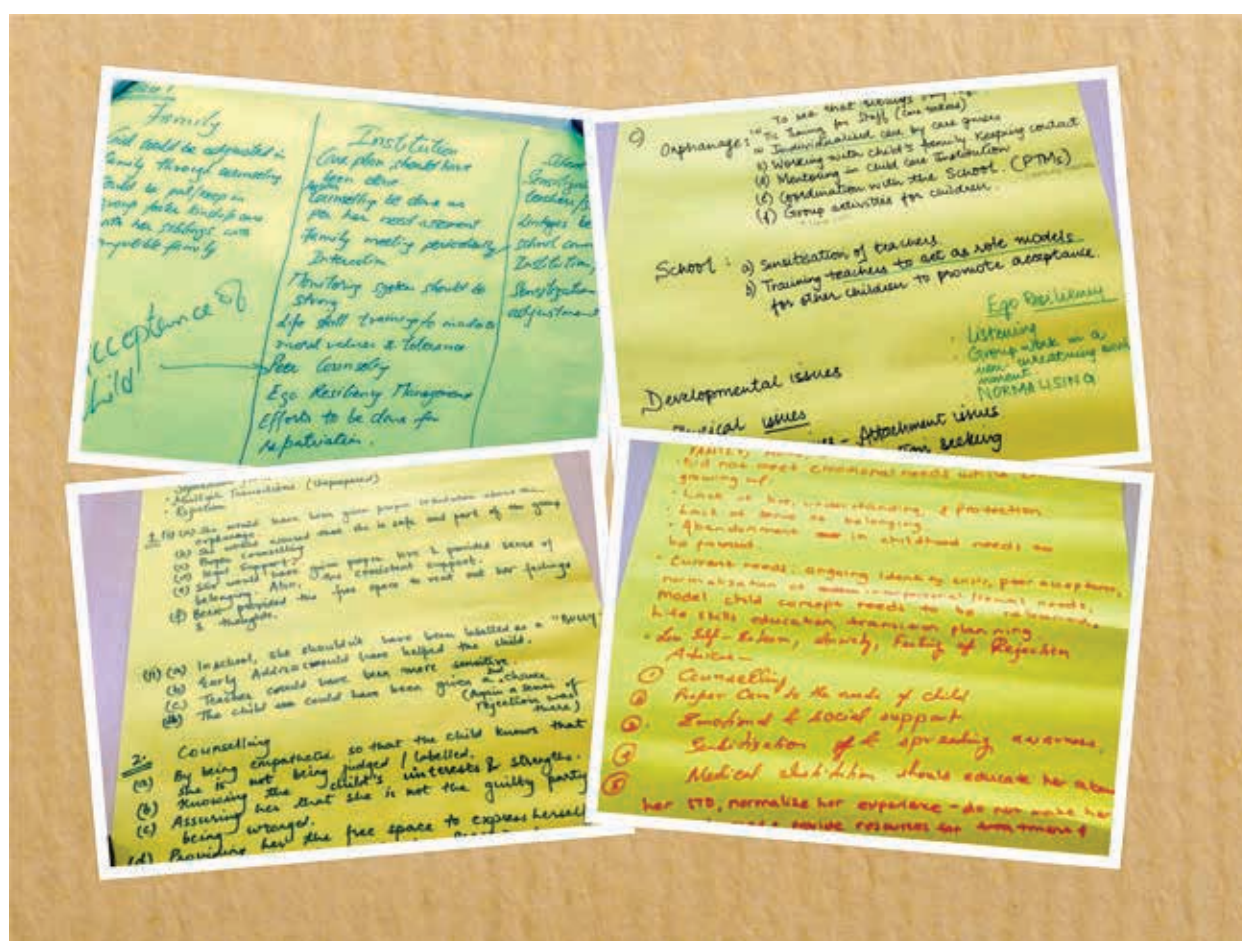 Family
through counselling
foster kinship care
with her siblings with
family
Acceptance of
child
Institution
Care plan should have
been done
Counselling be done as
per her need assessment
Family meeting periodically
Interaction
Monitoring system should be
strong
Life skill training to
moral values & tolerance
Peer Counselling
Ego Resiliency Management
Efforts to be done for
repatriation.
school
Institution,
Sensitization
adjustment
c) Orphanages
To see that siblings
Training for Staff (Care takers)
Individualised care by care givers
Working with child's family Keeping contact
(d) Mentoring in Child Care Institution
(e) Coordination with the School. (PTMs)
(f) Group activities for children.
School : a) Sensitisation of teachers
b) Training teachers to act as role models
for other children to promote acceptance.
Ego Resiliency
Listening
Group work in a
non-threatening
NORMALISING
Developmental issues
issues
- Attachment issues
seeking
Multiple Transitions (Unprepared)
Rejection
1. (i) (a) She would have been given proper orientation about the
orphanage
(b) that she is safe and part of the group
(c) Proper Counselling
(d) legal Support
(e) She would have given proper love & provided sense of
belonging. Also, the consistent support.
(f) Been provided the free space to vent out her feelings
& thoughts.
(ii) (a) In school, she shouldn't have been labelled as a "BULLY
(b) Early Address would have helped the child.
(c) Teacher could have been more sensitive.
(d) The child could have been given a chance
(Again a sense of
rejection was
there)
2. Counselling
(a) By being empathetic so that the child knows that
she is not being judged / labelled.
(b) Knowing the child's interests & strengths.
(c) Assuring her that she is not the guilty party
being wronged.
(d) Providing her the free space to express herself
Did not meet emotional needs while
growing up.
Lack of love, understanding, & protection
Lack of sense of belonging
Abandonment in childhood needs to
be
Current needs: ongoing identity crisis, peer acceptance,
normalisation of needs,
Model child concept needs to be
Life skills education, transition planning
Low Self-Esteem, Anxiety, Feeling of Rejection
① Counselling
② Proper Care to the needs of child
③ Emotional & social support
④ Sensitisation of & spreading awareness.
⑤ Medical institution should educate her about
her STD, normalise her experience - do not make her
provide resources for treatment &